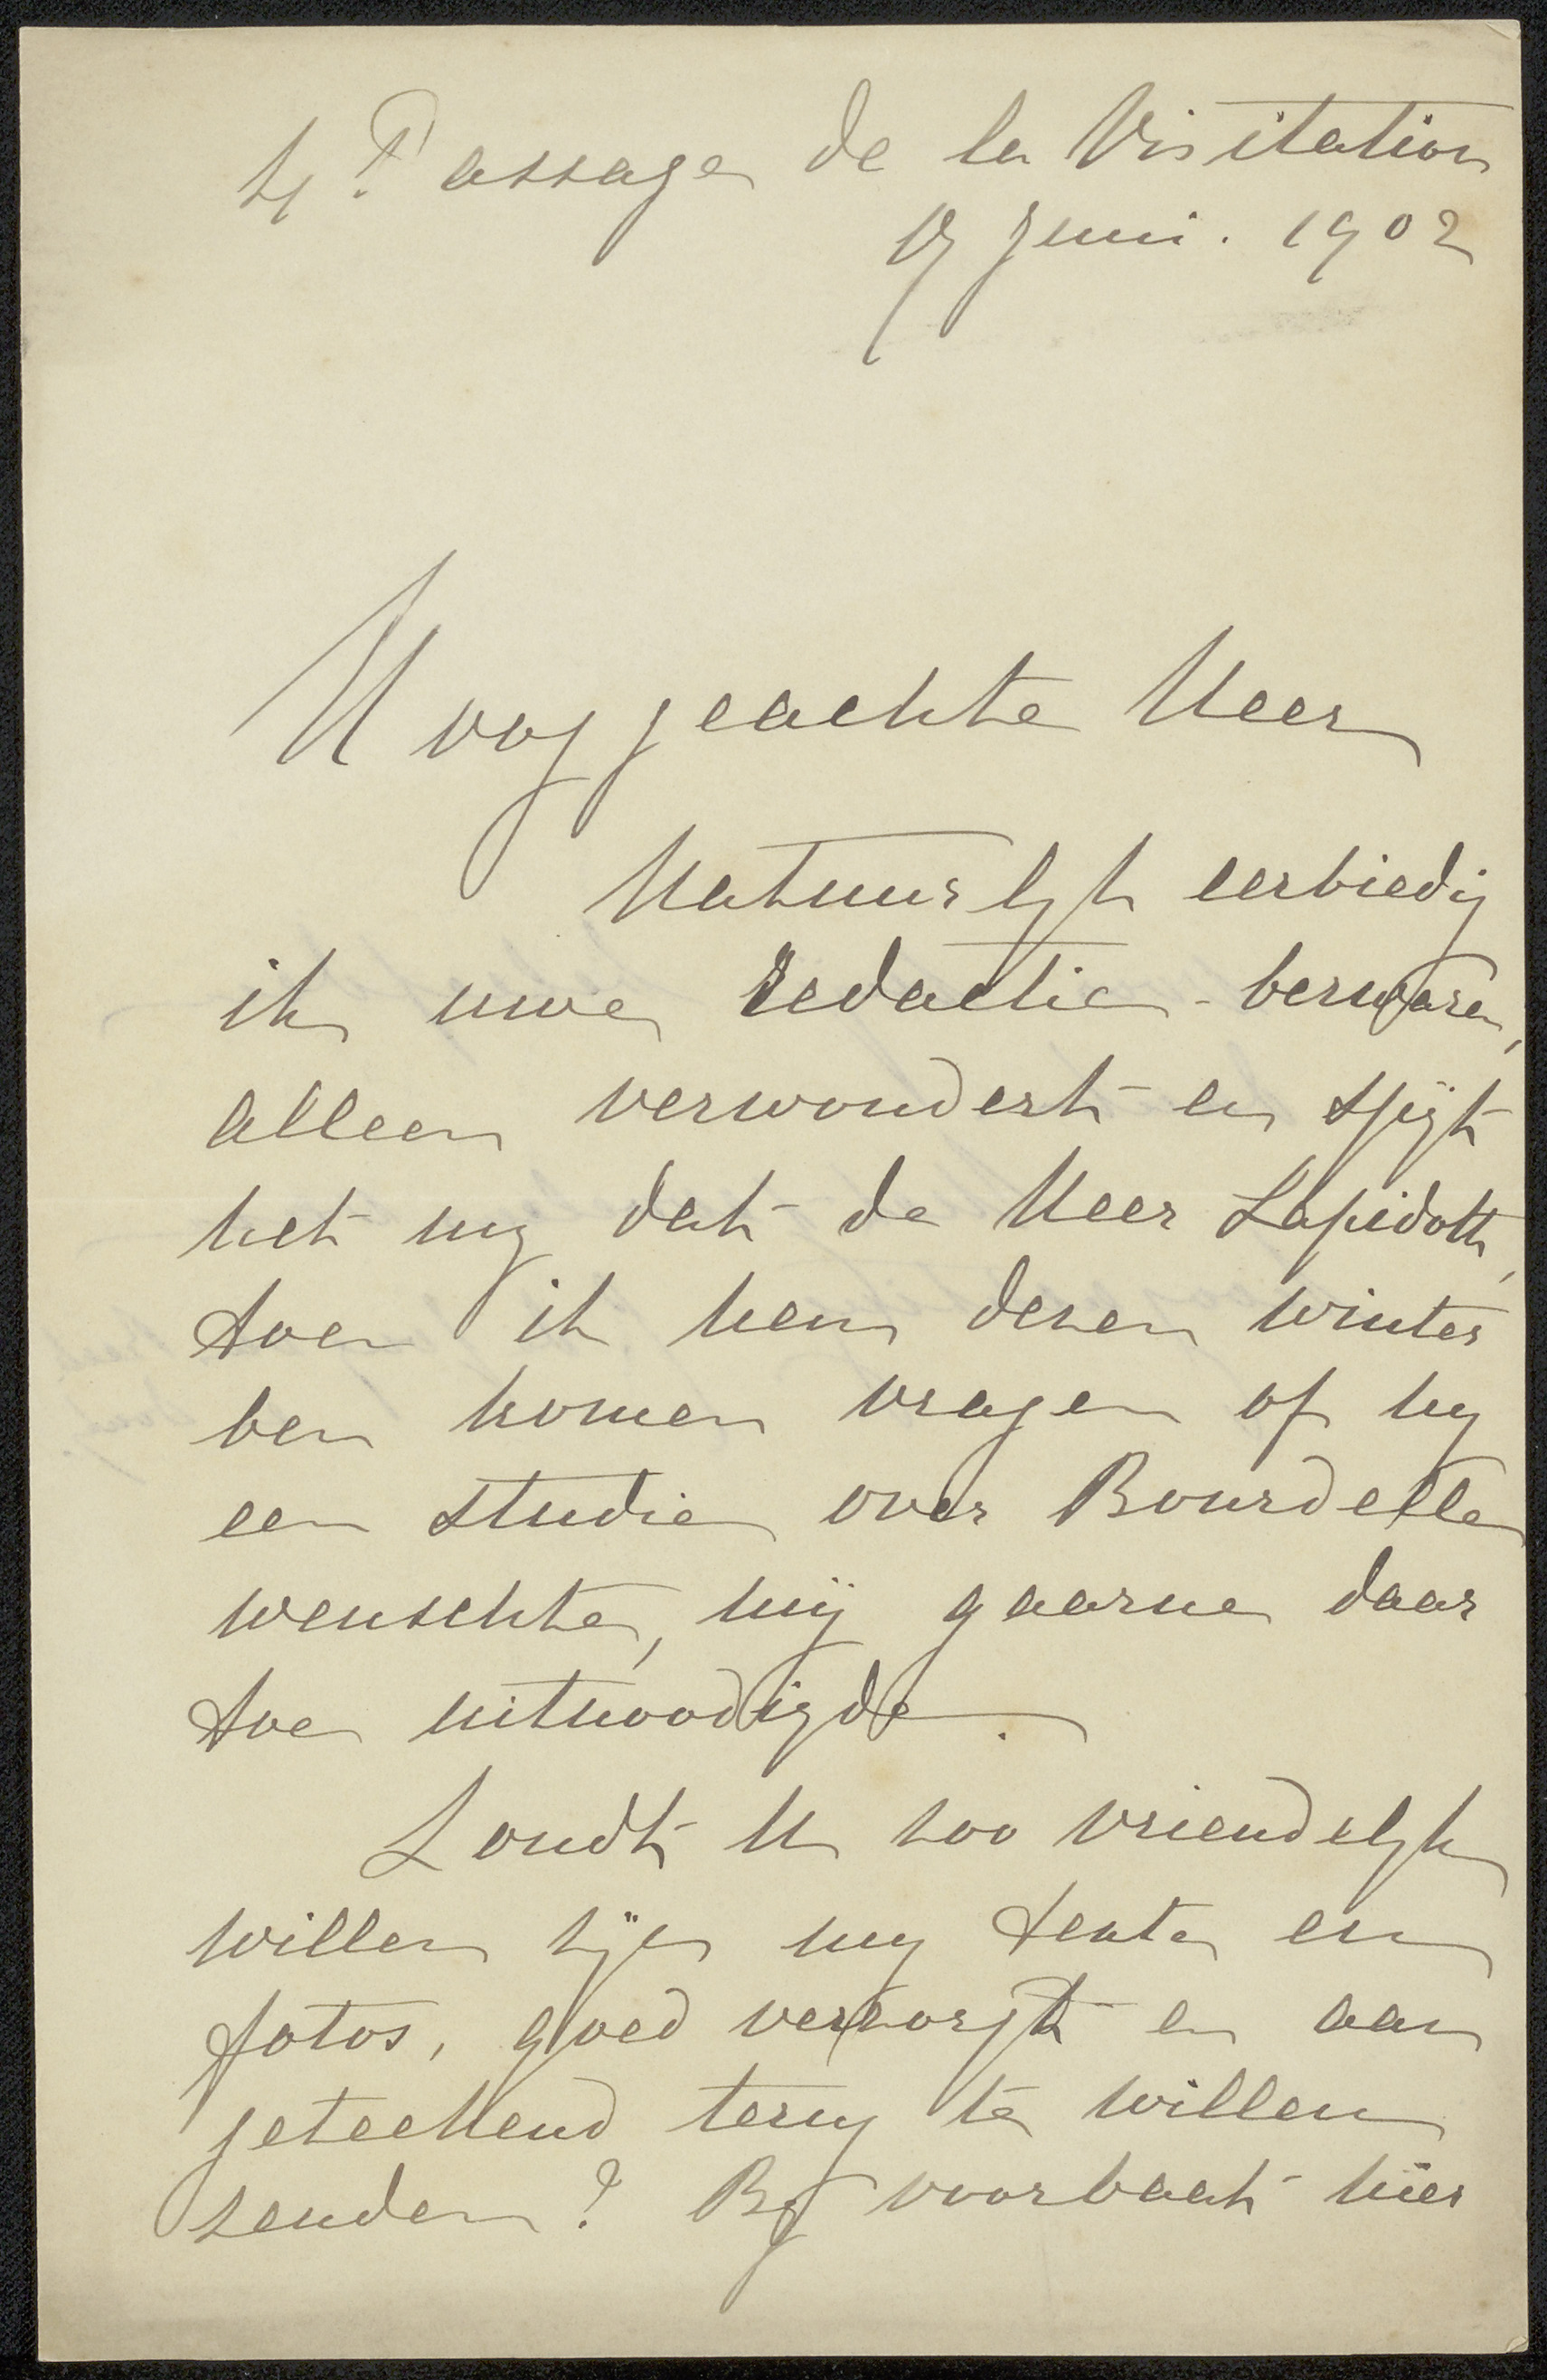 4 Passage de la Visitation
19 Juni. 1902
Hooggeachte Heer
Natuurlyk eerbiedig
ik uwe redactie-bezwaren,
alleen verwondert en spijt
het my dat de Heer Lapidoth,
toen ik hem dezen winter
ben komen vragen of hy
een studie over Bourdelle
wenschte, mij gaarne daar
toe uitnoodigde.
Zoudt U zoo vriendelyk
willen zijn my texte en
fotos, goed verzorgd en aan
geteekend terug te willen
zenden? By voorbaat hier